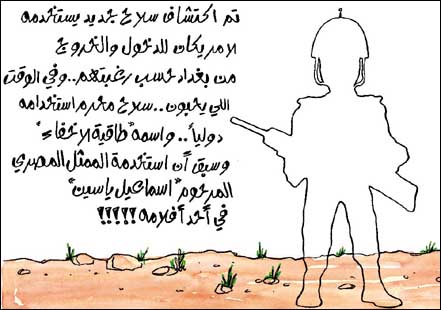 تم اكتشاف سلاح جديد يستخدمه
الامريكان للدخول والخروج
من بغداد حسب رغبتهم.. وفي الوقت
اللي يحبون.. سلاح محرم استخدامه
دولياً.. واسمه "طاقية الاخفاء"
وسبق أن استخدمة الممثل المصري
المرحوم "اسماعيل ياسين"
في أحد أفلامه !!!!!